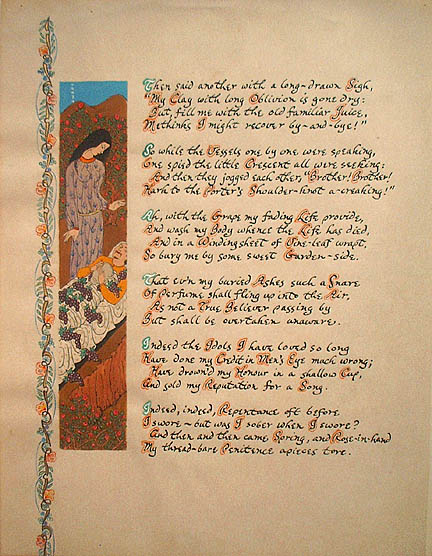 Then said another with a long-drawn Sigh,
"My Clay with long Oblivion is gone dry:
But, fill me with the old familiar Juice,
Methinks I might recover by-and-bye!"
So while the Vessels one by one were speaking,
One spied the little Crescent all were seeking:
And then they jogged each other, "Brother! Brother!
Hark to the Porter's Shoulder-knot a-creaking!"
Ah, with the Grape my fading Life provide,
And wash my Body whence the Life has died,
And in a Windingsheet of Vine-leaf wrapt,
So bury me by some sweet Garden-side.
That ev'n my buried Ashes such a Snare
Of Perfume shall fling up into the Air,
As not a True Believer passing by
But shall be overtaken unaware.
Indeed the Idols I have loved so long
Have done my Credit in Men's Eye much wrong;
Have drown'd my Honour in a shallow Cup,
And sold my Reputation for a Song.
Indeed, indeed, Repentance oft before
I swore - but was I sober when I swore?
And then and then came Spring, and Rose-in-hand
My thread-bare Penitence apieces tore.